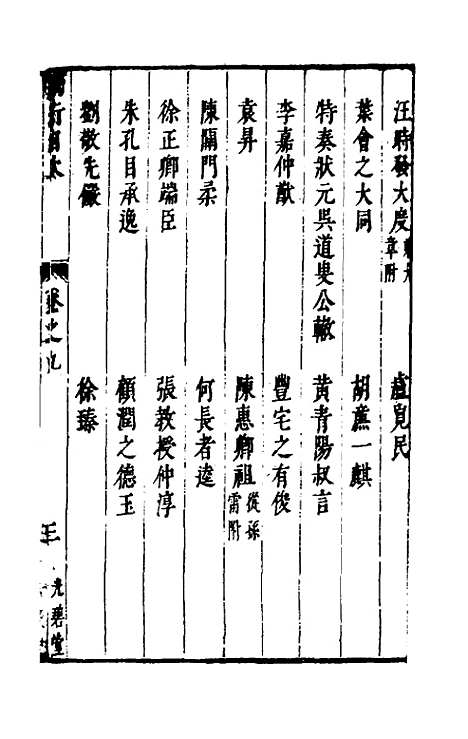 汪時發大度 韋附
盧覓民
葉會之大同
胡廌一麒
特奏狀元吳道叟公轍
黃青陽叔言
李嘉仲猷
豐宅之有俊
袁昇
陳惠卿祖 從孫雷附
陳隔門柔
何長者逵
徐正卿端臣
張教授仲淳
朱孔目承逸
顧潤之德玉
劉敬先儼
徐臻
卷之九
光碧堂